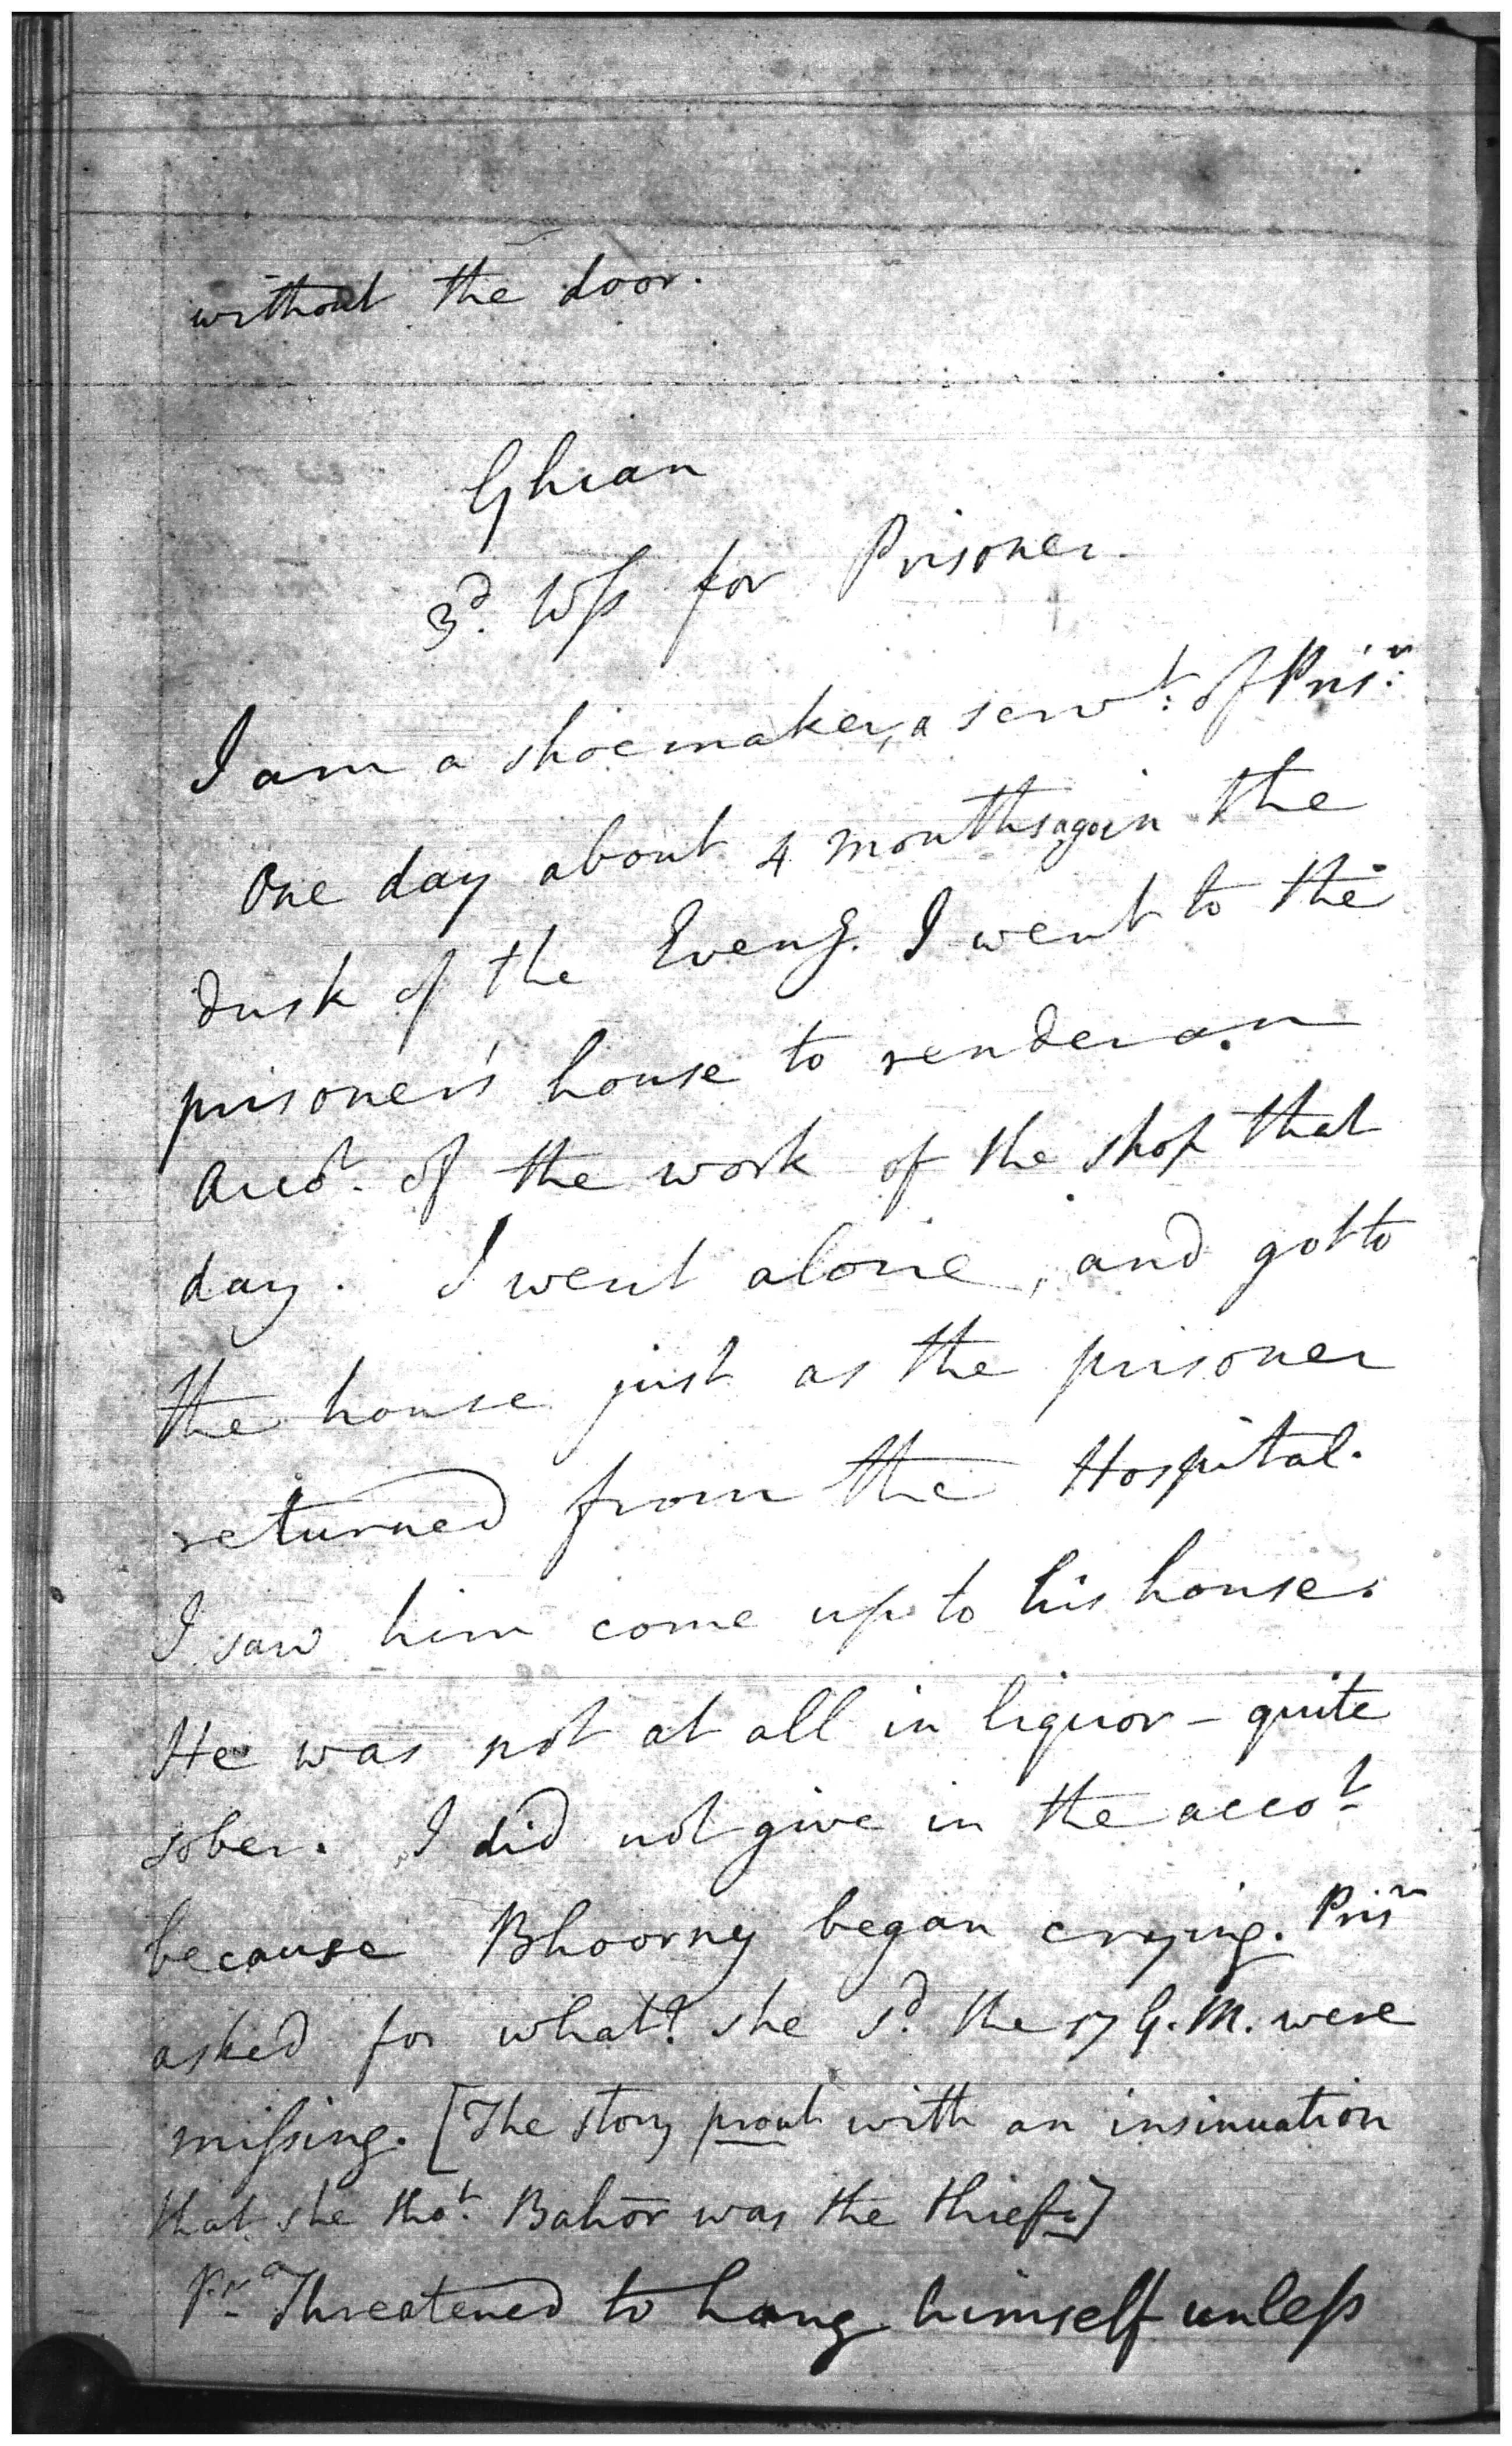 without the door.
Ghian
3d. Wss for Prisoner.
I am a shoemaker, a servt: of Prisr:
One day about 4 months ago in the
dusk of the Eveng. I went to the
prisoner's house to render an
Accot. of the work of the shop that
day. I went alone, and got to
the house just as the prisoner
returned from the Hospital.
I saw him come up to his house.
He was not at all in liquor - quite
sober. I did not give in the accot.
because Bhoorny began crying. Prisr
asked for what? she sd. the 17 G. M. were
missing. [The story prout with an insinuation
that she thot. Bahor was the thief.]
Threatened to hang himself unless